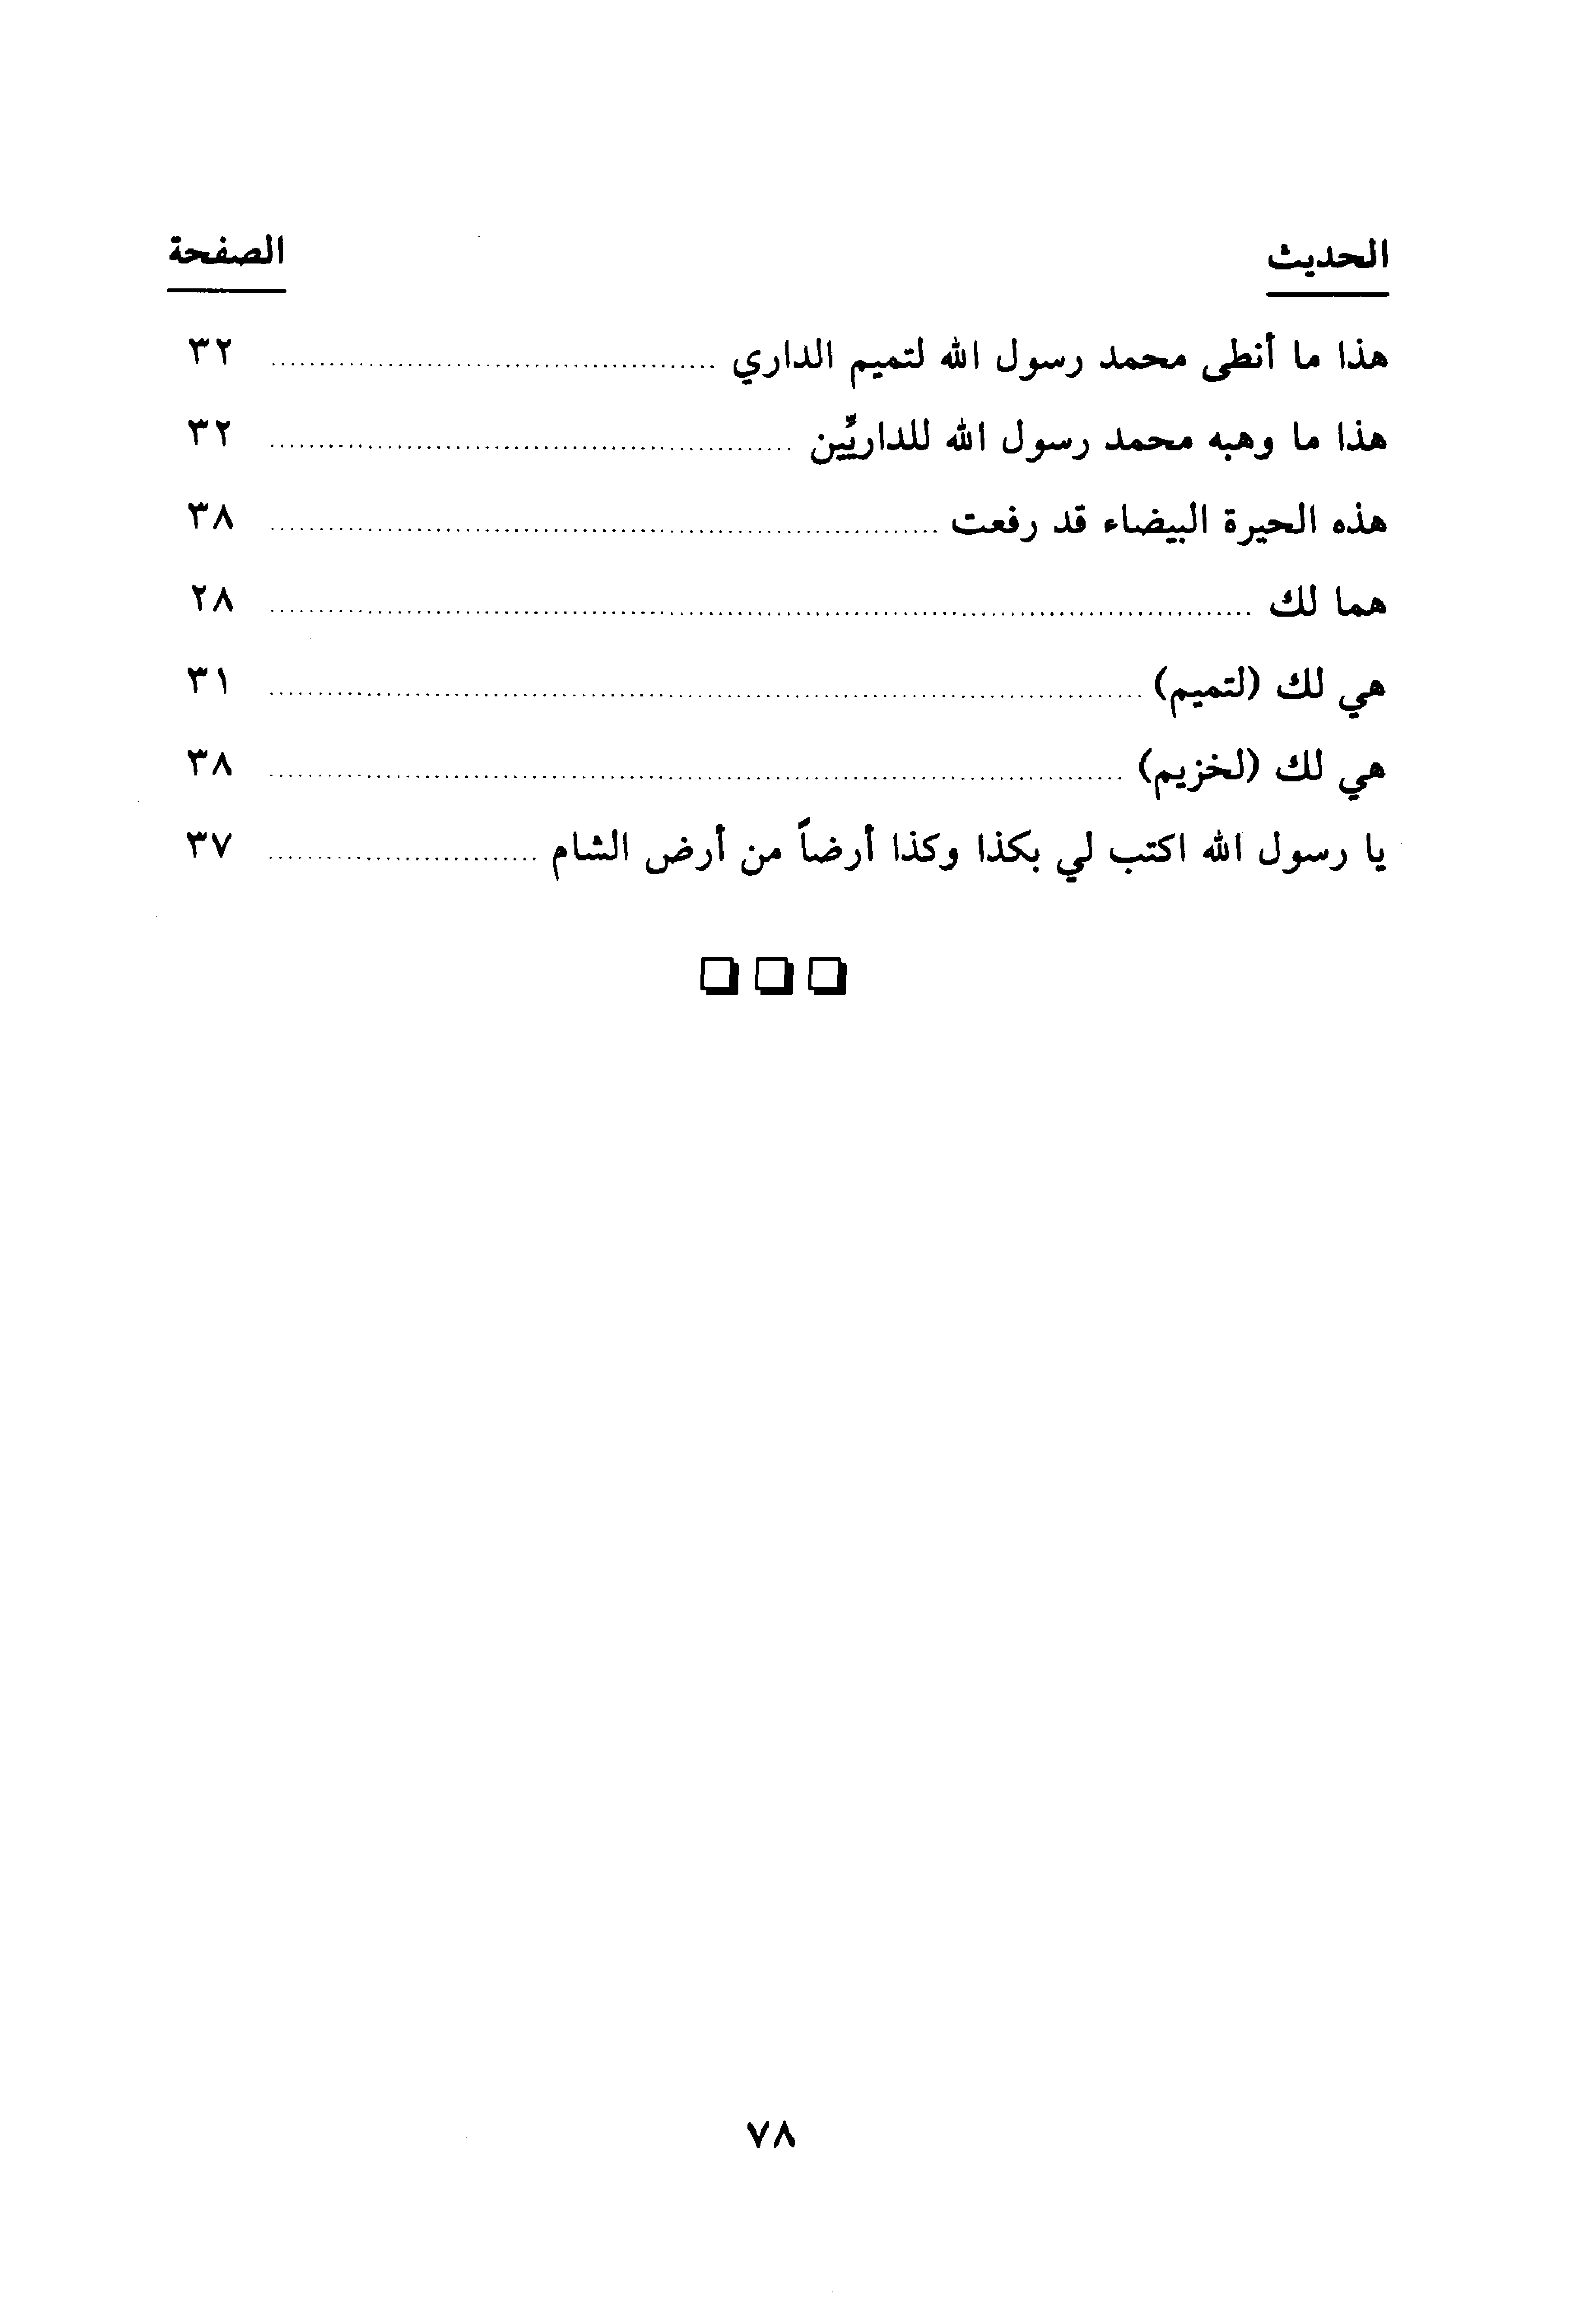 الحديث الصفحة
هذا ما أنطى محمد رسول الله لتميم الداري ................ ٣٢
هذا ما وهبه محمد رسول الله للداريِّين ................ ٣٢
هذه الحيرة البيضاء قد رفعت ................ ٣٨
هما لك ................ ٢٨
هي لك (لتميم) ................ ٣١
هي لك (لخزيم) ................ ٣٨
يا رسول الله اكتب لي بكذا وكذا أرضاً من أرض الشام ................ ٣٧
٧٨